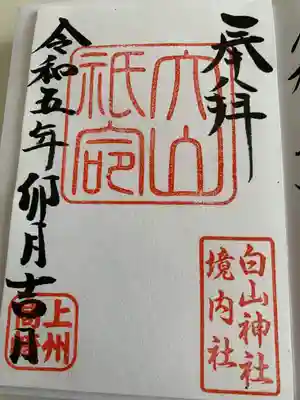 奉拝
大山
祇命
令和五年卯月吉日
白山神社
境内社
上州
高崎